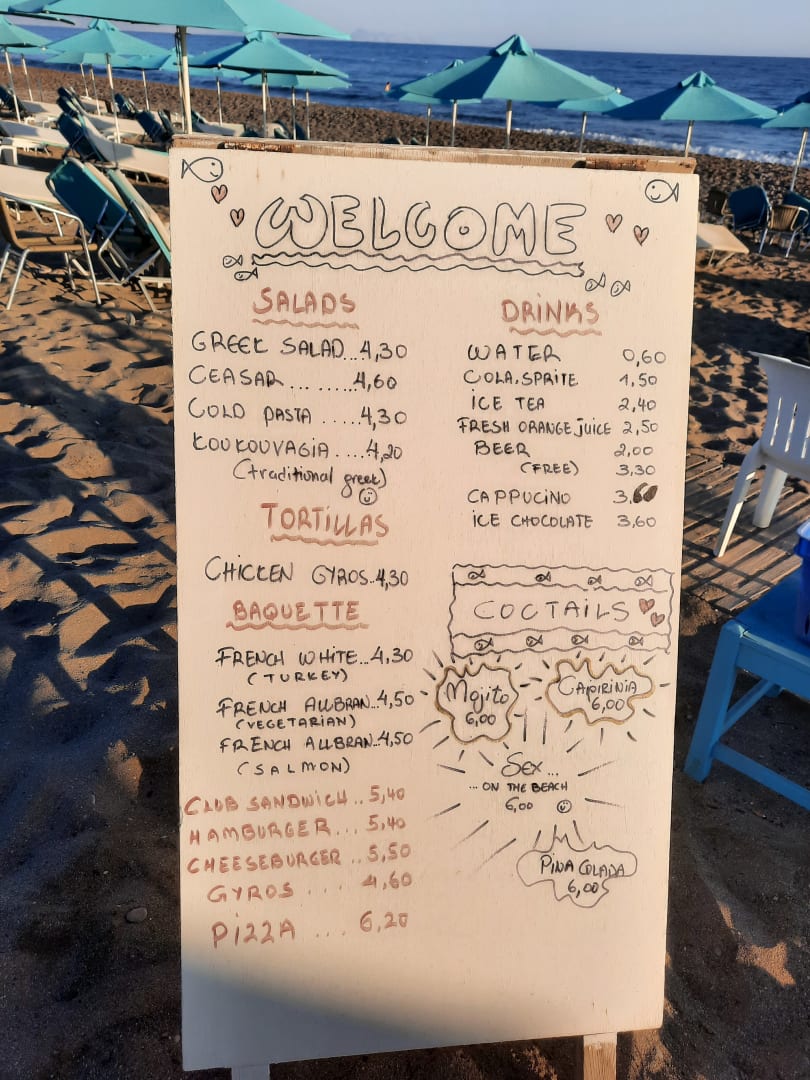 WELCOME
SALADS
GREEK SALAD...4,30
CEASAR.........4,60
COLD PASTA.....4,30
KOUKOUVAGIA....4,20
(traditional greek)
TORTILLAS
CHICKEN GYROS..4,30
BAQUETTE
FRENCH WHITE...4,30
(TURKEY)
FRENCH ALLBRAN...4,50
(VEGETARIAN)
FRENCH ALLBRAN..4,50
(SALMON)
CLUB SANDWICH..5,40
HAMBURGER...5,40
CHEESEBURGER..5,50
GYROS....4,60
PIZZA...6,20
DRINKS
WATER 0,60
COLA.SPRITE 1,50
ICE TEA 2,40
FRESH ORANGE JUICE 2,50
BEER 2,00
(FREE) 3,30
CAPPUCINO
ICE CHOCOLATE 3,60
COCTAILS
Mojito
6,00
CAIPIRINIA
6,00
SEX...
...ON THE BEACH
6,00
PINA COLADA
6,00